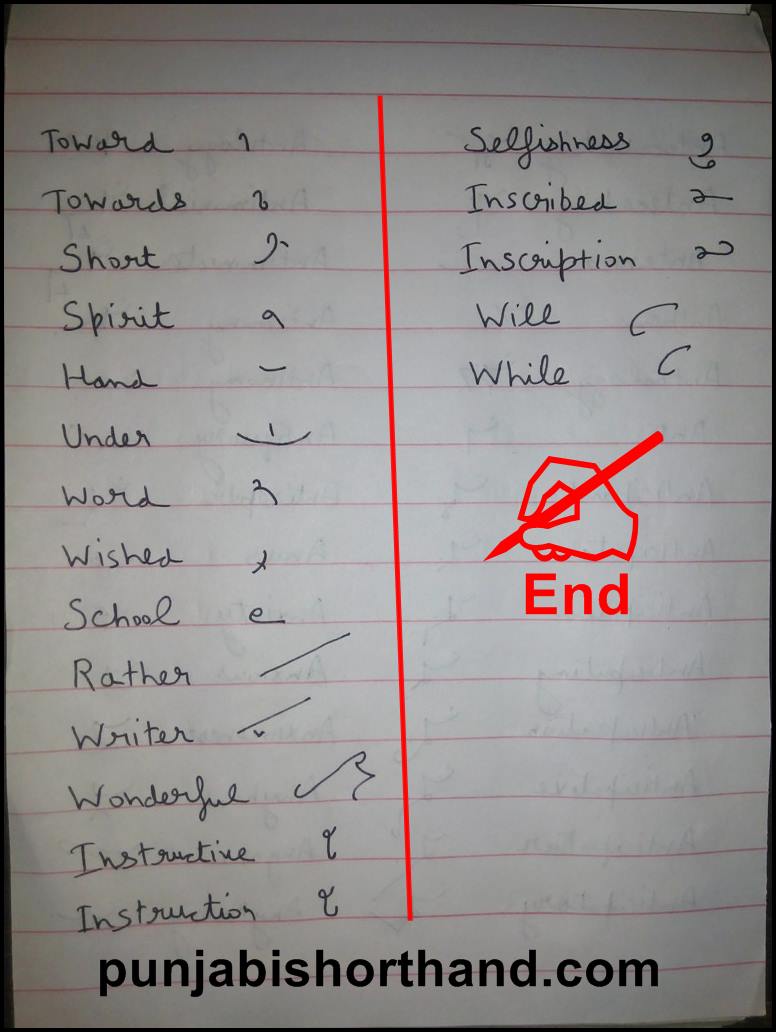 Toward
Towards
Short
Spirit
Hand
Under
Word
Wished
School
Rather
Writer
Wonderful
Instructive
Instruction
Selfishness
Inscribed
Inscription
Will
While
End
punjabishorthand.com